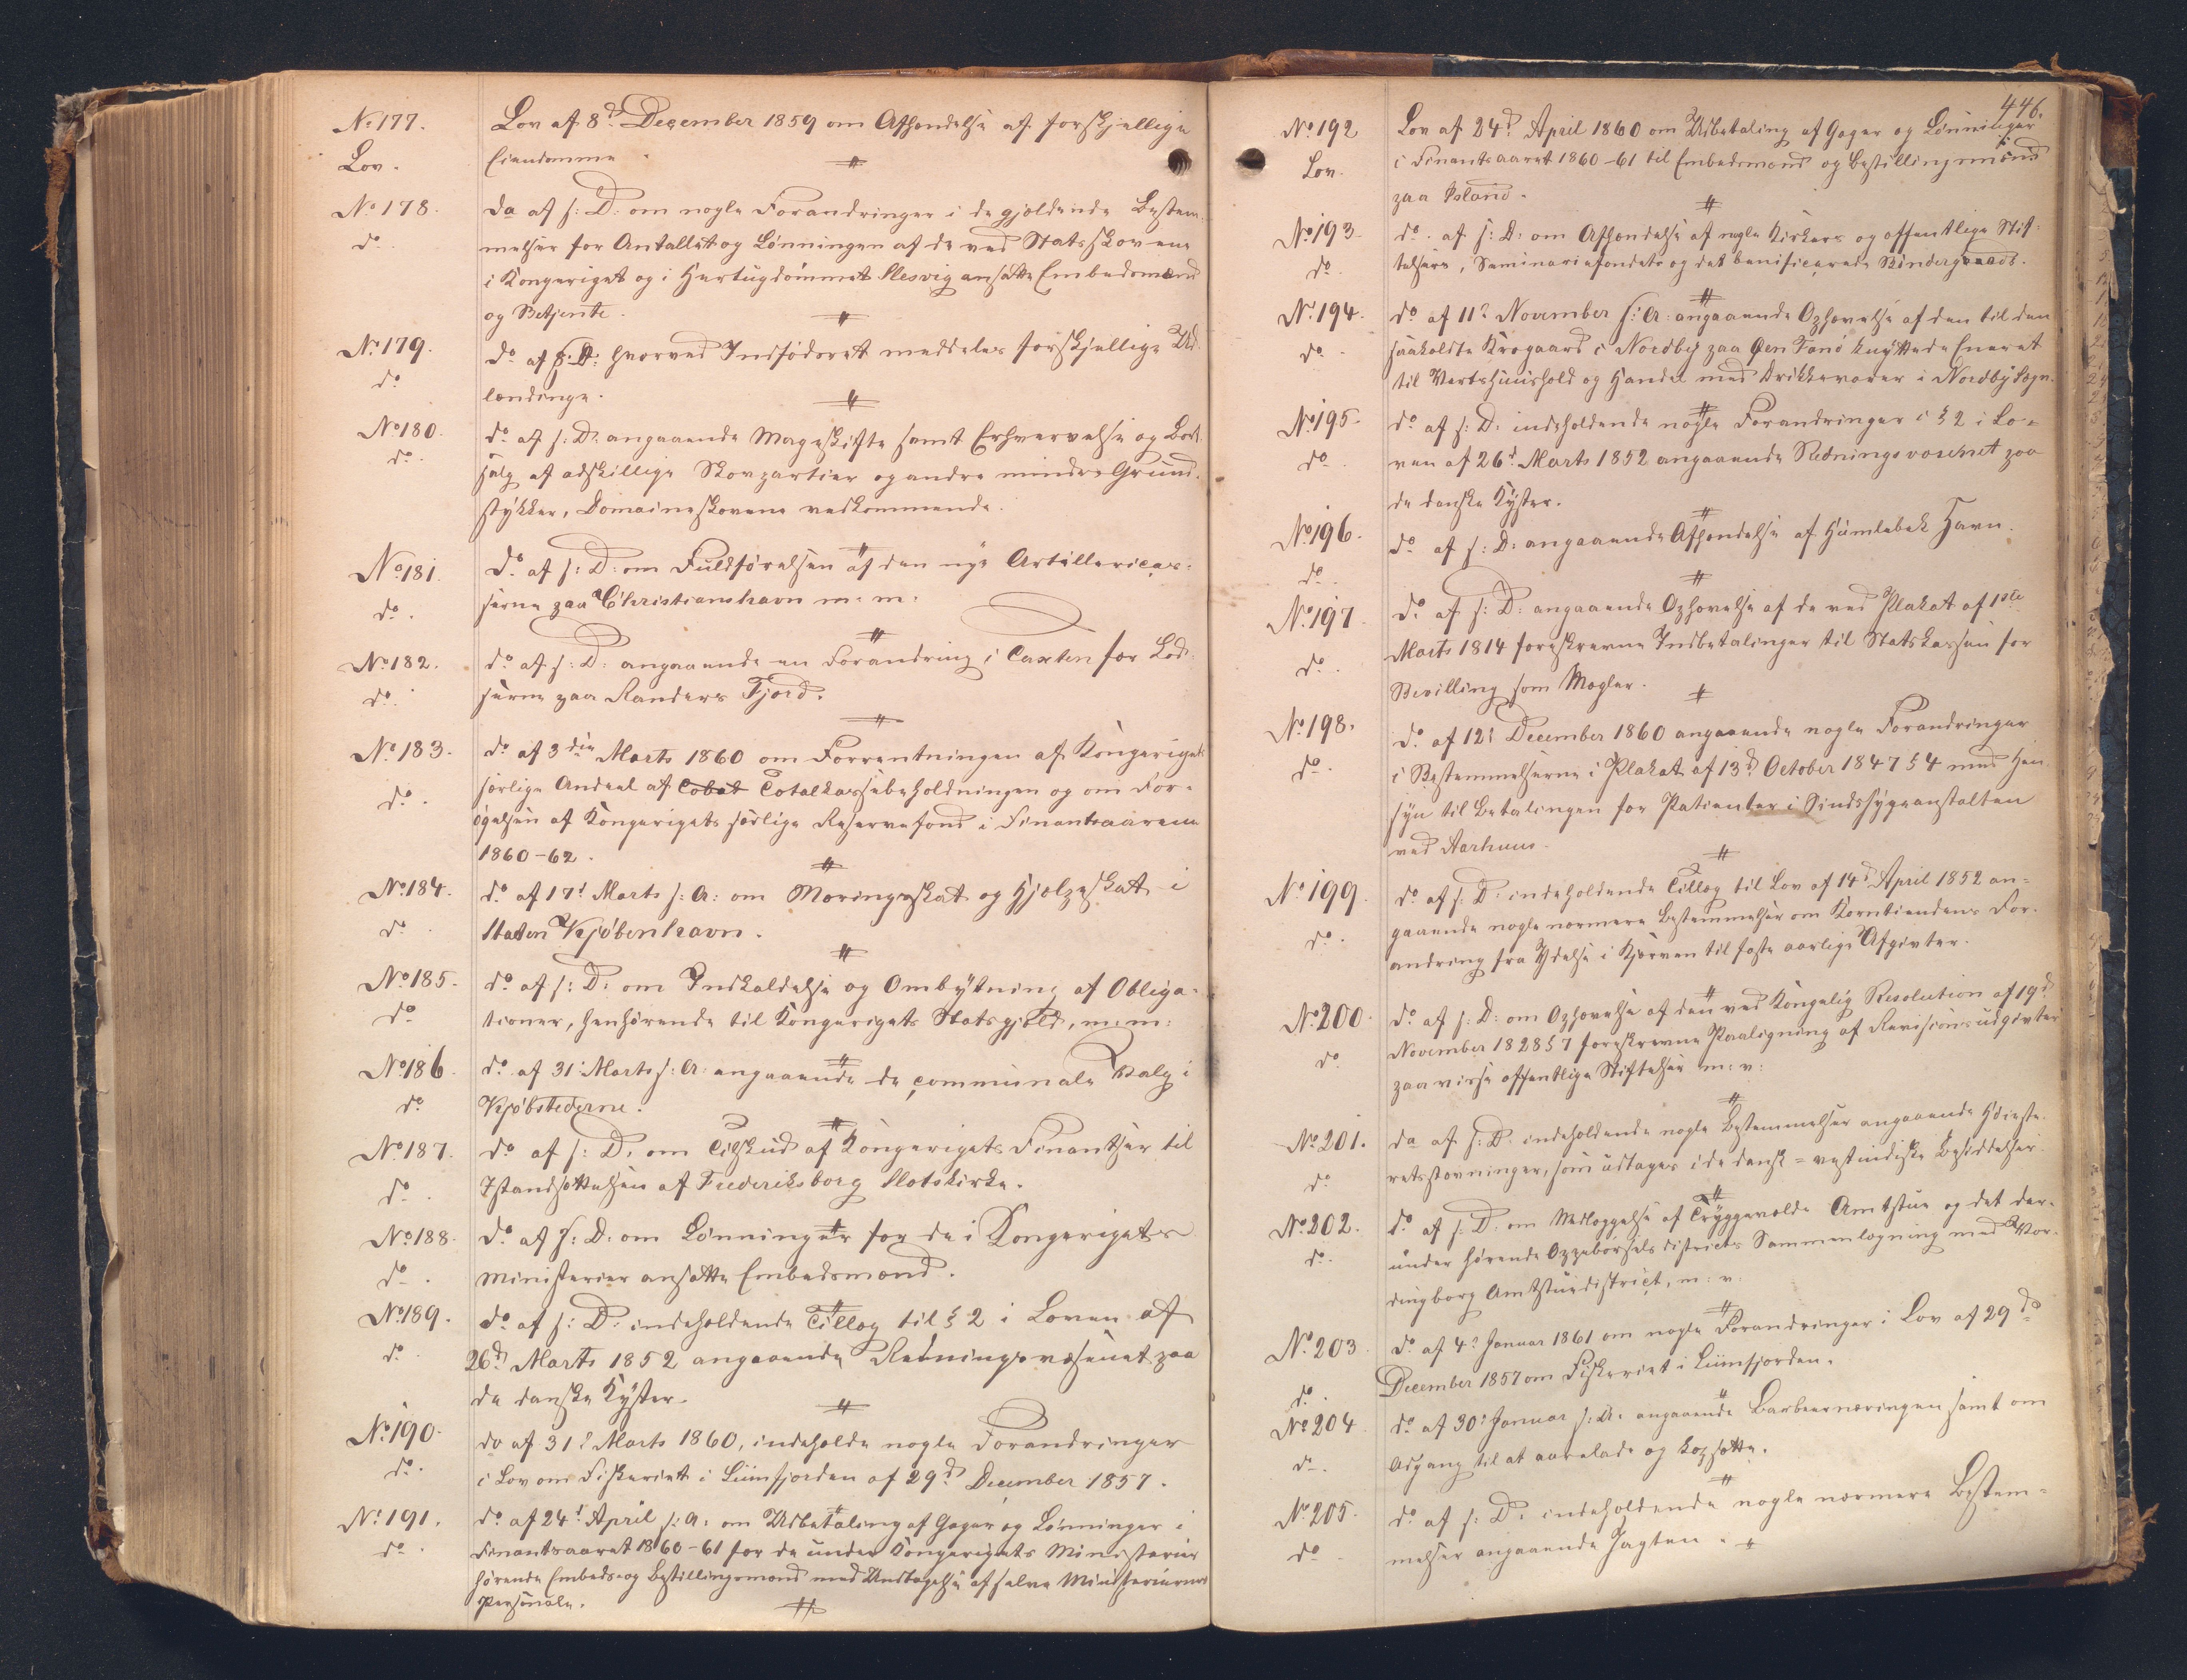 No 177. Lov af 8d December 1859 om Afhændelse af forskjellige
Lov. Eiendomme
No 178. do af s: D: om nogle Forandringer i de gjældende Bestem-
do melser for Antallet og Lønningen af de ved Statsskovene
i Kongeriget og i Hertugdømmet Slesvig ansatte Embedsmænd
og Betjente.
No 179. do af s: D: hvorved Indfødsret meddeles forskjellige Ud-
do lændinge.
No 180. do af s: D: angaaende Mageskifte samt Erhvervelse og Bort-
do. salg af adskillige Skovpartier og andre mindre Grund-
stykker, Domaineskovene vedkommende.
No 181. do af s: D: om Fuldførelsen af den nye Artilleriecas-
do. serne paa Christianshavn m: m:
No 182. do af s: D: angaaende en Forandring i Taxten for Lod-
do. serne paa Randers Fjord.
No 183. do af 3die Marts 1860 om Forrentningen af Kongerigets
do. særlige Andeel af Totalkassebeholdningen og om For-
øgelsen af Kongerigets særlige Reservefond i Finantsaarene
1860-62.
No 184. do af 17d Marts s: A: om Næringsskat og Hjælpeskat i
do Staden Kjøbenhavn.
No 185. do af s: D: om Indkaldelse og Ombytning af Obliga-
do tioner, henhørende til Kongerigets Statsgjæld, m: m:
No 186. do af 31 Marts s: A: angaaende de communale Valg i
do Kjøbstederne.
No 187. do af s: D: om Tilskud af Kongerigets Finantser til
do. Istandsættelsen af Frederiksborg Slotskirke.
No 188. do af s: D: om Lønninger for de i Kongerigets
do. Ministerier ansatte Embedsmænd.
No 189. do af s: D: indeholdende Tillæg til § 2 i Loven af
do. 26d Marts 1852 angaaende Redningsvæsenet paa
de danske Kyster.
No 190. do af 31d Marts 1860, indeholde nogle Forandringer
do. i Lov om Fiskeriet i Liimfjorden af 29d December 1857.
No 191. do af 24d April s: A: om Udbetaling af Gager og Lønninger i
do. Finantsaaret 1860-61 for de under Kongerigets Ministerier
hørende Embeds- og Bestillingsmænd med Undtagelse af selve Ministeriernes
Personale.
446.
No 192 Lov af 24d April 1860 om Udbetaling af Gager og Lønninger
Lov. i Finantsaaret 1860-61 til Embedsmænd og Bestillingsmænd
paa Island.
No 193. do. af s: D: om Afhændelse af nogle Kirkers og offentlige Stif-
do telsers, Seminariefondets og det beneficerede Bøndergaads.
No 194. do af 11d November s: A: angaaende Ophævelse af den til den
do. saakaldte Krogaard i Nordby paa Øen Fanø knyttede Eneret
til Vertshuushold og Handel med Drikkevarer i Nordby Sogn.
No 195. do af s: D: indeholdende nogle Forandringer i § 2 i Lo-
do. ven af 26d Marts 1852 angaaende Redningsvæsenet paa
de danske Kyster.
No 196. do af s: D: angaaende Afhændelse af Humlebek Havn.
do.
No 197 do af s: D: angaaende Ophævelse af de ved Plakat af 1ste
do. Marts 1814 foreskrevne Indbetalinger til Statskassen for
Bevilling som Mægler.
No 198. do. af 12d December 1860 angaaende nogle Forandringer
do. i Bestemmelserne i Plakat af 13d October 1847 § 4 med Hen-
syn til Betalingen for Patienter i Sindssygeanstalten
ved Aarhuus.
No 199. do af s: D: indeholdende Tillæg til Lov af 14d April 1852 an-
do. gaaende nogle nærmere Bestemmelser om Korntiendens For-
andring fra Ydelse i Kjærven til faste aarlige Afgivter.
No 200. do. af s: D: om Ophævelse af den ved Kongelig Resolution af 19d
do November 1828 § 7 foreskrevne Paaligning af Revisionsudgivter
paa visse offentlige Stiftelser m: v:
No 201. do af s: D: indeholdende nogle Bestemmelser angaaende Høieste-
do retsstævninger, som udtages i de dansk-vestindiske Besiddelser.
No 202. do af s: D: om Nedlæggelse af Tryggevælde Amtstue og det der-
do. under hørende Oppebørselsdistricts Sammenlægning med Vor-
dingborg Amtstuedistrict, m: v:
No 203. do. af 4d Januar 1861 om nogle Forandringer i Lov af 29d
do. December 1857 om Fiskeriet i Liimfjorden.
No 204. do af 30d Januar s: A: angaaende Barbeernæringen samt om
do. Adgang til at aarelade og kopsætte.
No 205. do. af s: D: indeholdende nogle nærmere Bestem-
do melser angaaende Jagten.